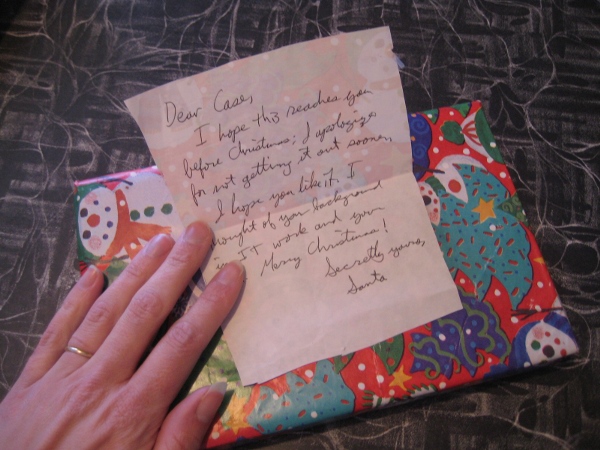 Dear Case,
I hope this reaches you
before Christmas; I apologize
for not getting it out sooner,
I hope you like it. I
thought of your background
in IT work and your
Merry Christmas!
Secretly yours,
Santa